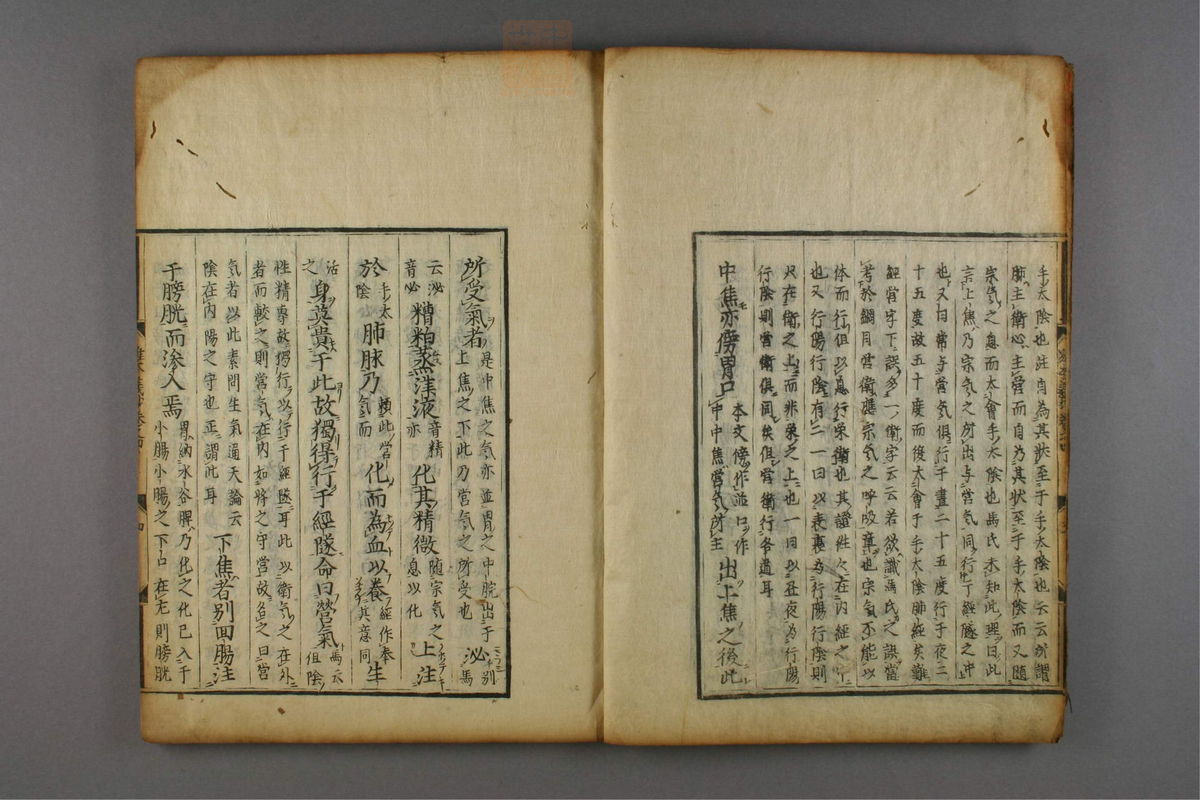 手太陰也註自為其狀至于手太陰也云云所謂
肺主衛心主營而自乃其狀至于手太陰而又隨
宗氣之息而大會手太陰也馬氏未知此理曰此
言上焦乃宗氣之所出与營氣同行于經隧之中
也又曰常与營氣俱行于晝二十五度行于夜二
十五度故五十度而後大會于手太陰肺經矣難
經營字下誤多一衛字云云若欲識馬氏之誤當
考於綱目營衛
体而行但以息行榮衛也其證件々在内經之中
也又行陽行陰有二一曰以表裏為行陽行陰則
只在衛之上而非榮之上也一曰以昼夜為行陽
行陰則營衛俱同矣但營衛行各道耳
中焦亦傍胃口
本文傍作並口作
中中焦營氣所主
出上焦之後此
所受氣者
是中焦之氣亦並胃之中脘出于
上焦之下此乃營氣之所受也
泌
馬
別
云泌
音必
糟粕蒸津液
音精
亦
化其精微
随宗氣之
息以化
上注
於
手太
陰
肺脉乃
類此營
氣而
化而為血以養
經作奉
其意同
生
活
之
身莫貴于此故獨得行于經隧命曰營氣
馬云
但陰
性精專故
者而較之則營氣在内如将之守營故名之曰營
氣者以此素問生氣通天論云
陰在内陽之守也正謂此耳
下焦者别回腸注
于膀胱而滲入焉
胃納水谷脾乃化之化已入于
小腸小腸之下口在左則膀胱